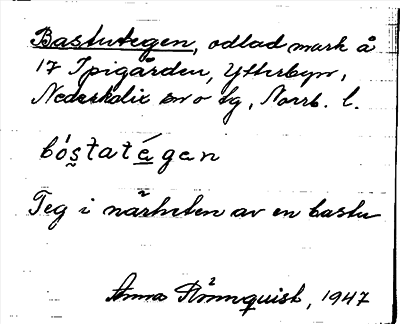 Bastutegen, odlad mark å
17 Spigården, Ytterbyn,
Nederkalix sn o tg, Norrb. l.
bó̀s̰tatégan
Teg i närheten av en bastu
Anna Rönnquist, 1947